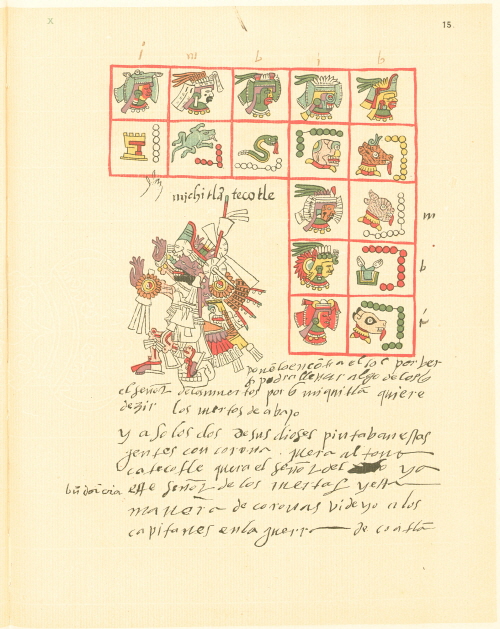 X
15
i m b i b
michitlātecotle
m
b
i
ponēlo encōtra el sol por ver
si podra llevar algo de los q
el señor de los muertos por q miquitla quiere
dezir los muertos de abajo
y a solos dos de sus dioses pintaban estas
gentes con corona. que era al tona
catecotle que era el señor del ya
bundācia este señor de los muertos y esta
manera de coronas vide yo a los
capitanes en la guerra de coatlā